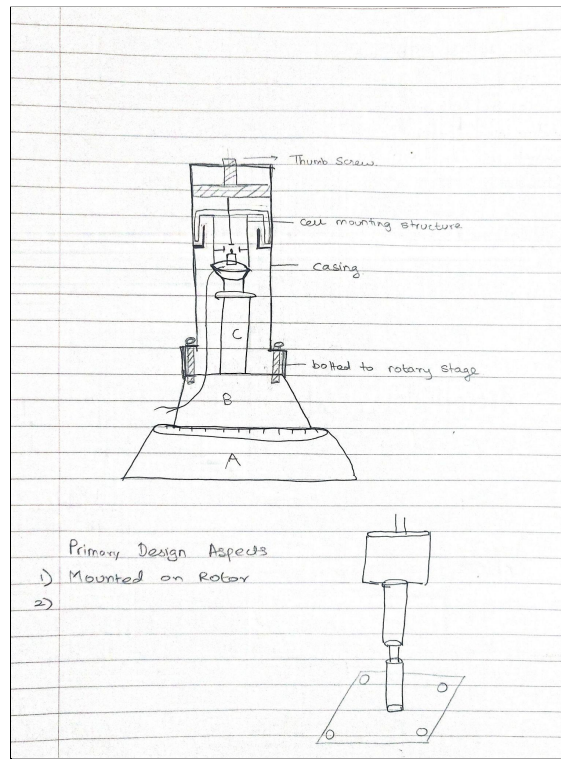 Thumb Screw.
cell mounting structure
casing
C
bolted to rotary stage
B
A
Primary Design Aspects
1) Mounted on Rotor
2)